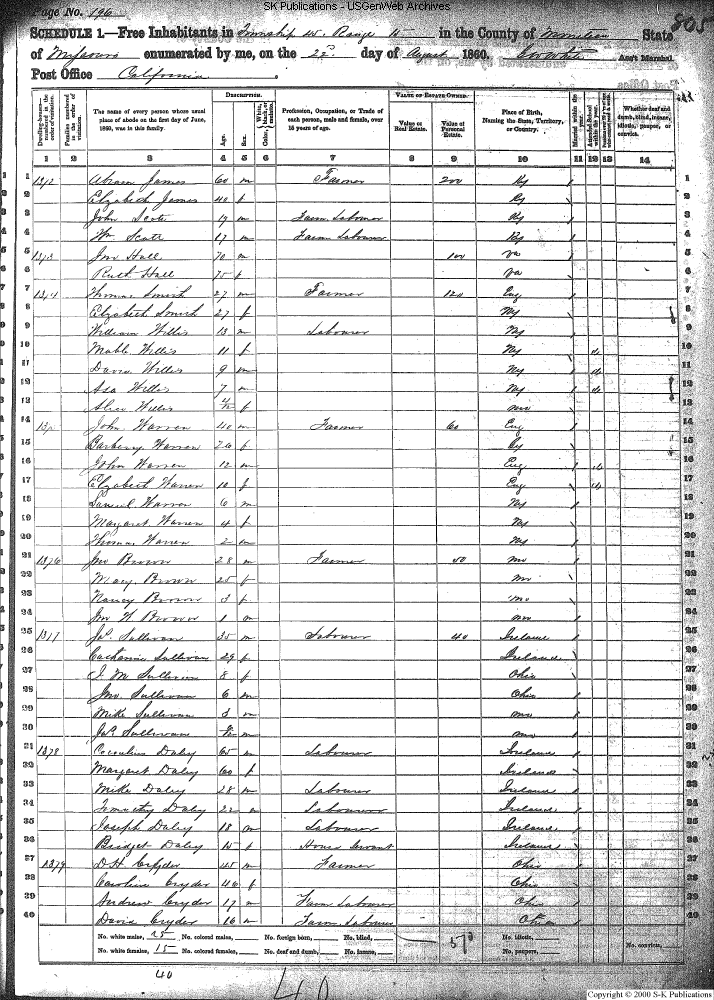 SK Publications - USGenWeb Archives
Page No. 196
805
SCHEDULE 1.—Free Inhabitants in Township 45 Range in the County of Moniteau State
of Missouri enumerated by me, on the 22 day of August 1860. Ass't Marshal.
Post Office California
Dwelling-houses—numbered in the order of visitation.
Families numbered in the order of visitation.
The name of every person whose usual place of abode on the first day of June, 1860, was in this family.
DESCRIPTION.
Age.
Sex.
Profession, Occupation, or Trade of each person, male and female, over 15 years of age.
VALUE OF ESTATE OWNED.
Value of Real Estate.
Value of Personal Estate.
Place of Birth, Naming the State, Territory, or Country.
Married within the year.
Whether deaf and dumb, blind, insane, idiotic, pauper, or convict.
1 2 3 4 5 6 7 8 9 10 11 12 13 14
1 Abram James 60 m Farmer 200 Ky 1
2 Elizabeth James 40 f Ky 2
3 John Scott 19 m Farm Labourer Ky 3
4 Wm Scott 17 m Farm Labourer Ky 4
5 1373 Jno Hall 70 m 100 Va 5
6 Ruth Hall 75 f Va 6
7 1374 Thomas Smith 27 m Farmer 120 Eng 7
8 Elizabeth Smith 27 f Ky 8
9 William Willis 13 m Labourer Ky 9
10 Willis 11 f Ky 10
11 David Willis 9 m Ky 11
12 Asa Willis 7 m Ky 12
13 Alice Willis f Mo 13
14 John Warren 40 m Farmer 60 Eng 14
15 Warren 26 f 15
16 John Warren 12 m Eng 16
17 Elizabeth Warren 10 f Eng 17
18 Samuel Warren 6 m Ky 18
19 Margaret Warren 4 f Ky 19
20 Thomas Warren 2 m Ky 20
21 1376 Jno Brown 28 m Farmer 50 Mo 21
22 Brown 25 f Mo 22
23 Nancy Brown 3 f Mo 23
24 Jno W Brown 1 m Mo 24
25 1377 Jas Sullivan 35 m Labourer 40 Ireland 25
26 Catharine Sullivan 29 f Ireland 26
27 J. M Sullivan 8 f Ohio 27
28 Jno. Sullivan 6 m Ohio 28
29 Mike Sullivan 3 m Mo 29
30 Jas Sullivan m Mo 30
31 1378 Cornelius Daley 65 m Labourer Ireland 31
32 Margaret Daley 60 f Ireland 32
33 Mike Daley 28 m Labourer Ireland 33
34 Timothy Daley 22 m Labourer Ireland 34
35 Joseph Daley 18 m Labourer Ireland 35
36 Bridget Daley 15 f House Servant Ireland 36
37 1379 D H Cryder 45 m Farmer Ohio 37
38 Caroline Cryder 46 f Ohio 38
39 Andrew Cryder 17 m Farm Labourer Ohio 39
40 David Cryder 16 m Farm Labourer Ohio 40
No. white males, 25 No. colored males, No. foreign born, No. blind, 570 No. idiotic, No. convicts,
No. white females, 15 No. colored females, No. deaf and dumb, No. insane, No. paupers,
40
40
Copyright © 2000 S-K Publications